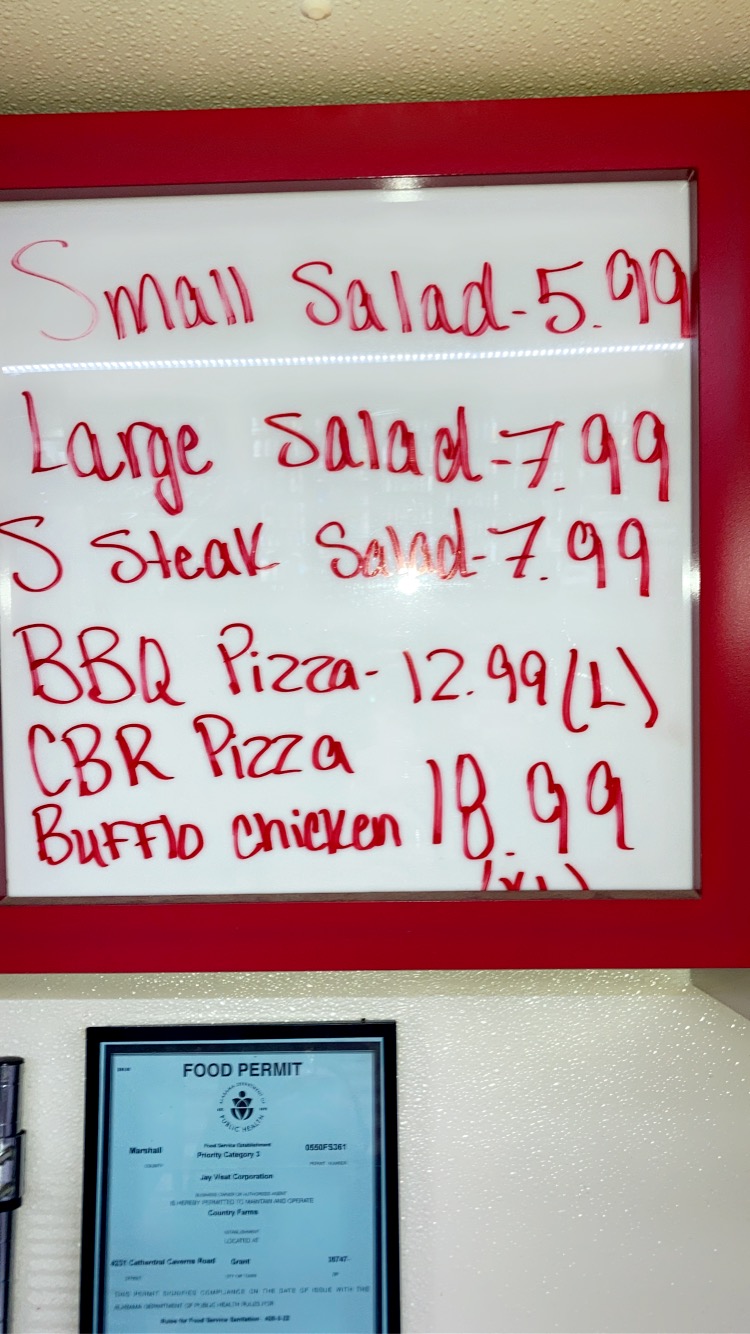 Small Salad-5.99
Large Salad-7.99
S Steak Salad-7.99
BBQ Pizza-12.99(L)
CBR Pizza
Bufflo chicken 18.99
(XL)
FOOD PERMIT
ALABAMA DEPARTMENT OF PUBLIC HEALTH
Marshall
Food Service Establishment
Priority Category 3
0550FS361
COUNTY
PERMIT NUMBER
Jay Weat Corporation
BUSINESS OWNER OR AUTHORIZED AGENT
IS HEREBY PERMITTED TO MAINTAIN AND OPERATE
Country Farms
ESTABLISHMENT
LOCATED AT
4231 Cathedral Caverns Road Grant 35747-
STREET CITY OR TOWN ZIP
THIS PERMIT SIGNIFIES COMPLIANCE ON THE DATE OF ISSUE WITH THE
ALABAMA DEPARTMENT OF PUBLIC HEALTH RULES FOR
Rules for Food Service Sanitation